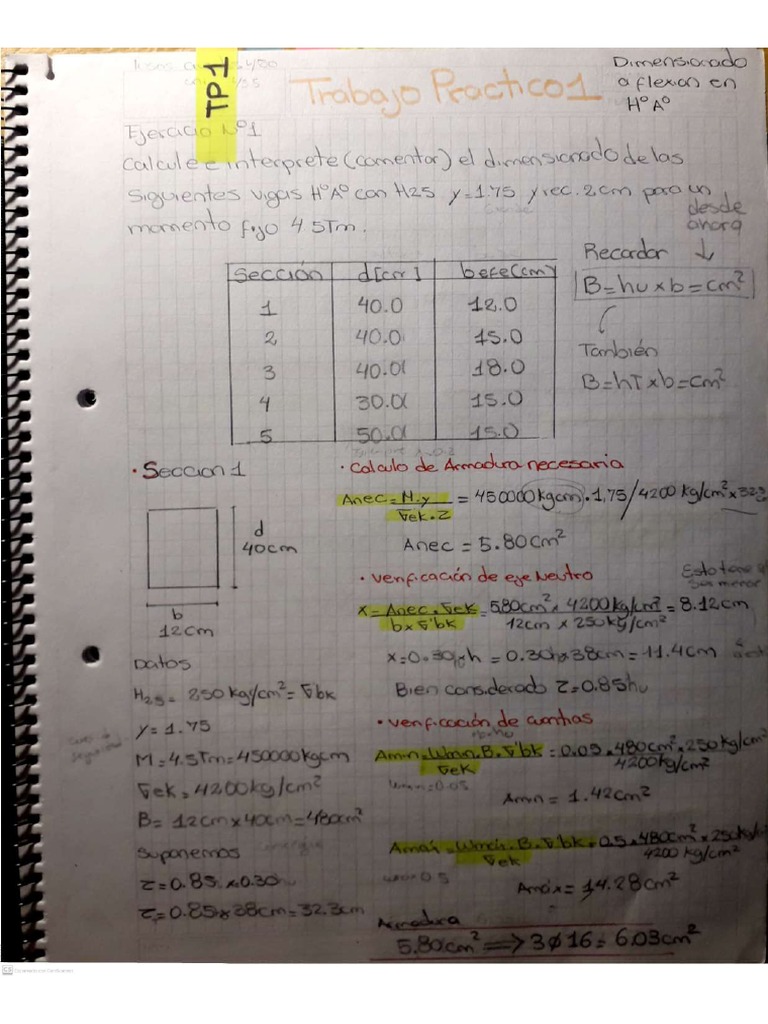 TP1
Trabajo Practico 1
Dimensionado
a flexion en
H°A°
Ejercicio N°1
Calcule e interprete (comentar) el dimensionado de las
siguientes vigas H°A° con H25 y=1.75 y rec. 2cm para un
momento fijo 4.5Tm.
desde
ahora
Recordar
B=hu x b=cm²
También
B=hT x b=cm²
Sección d[cm] befe(cm)
1 40.0 12.0
2 40.0 15.0
3 40.0 18.0
4 30.0 15.0
5 50.0 15.0
• Seccion 1
d
40cm
b
12cm
Datos
H25= 250kg/cm²=σbk
y=1.75
M=4.5Tm=450000kgcm
σek=4200kg/cm²
B= 12cm x 40cm=480cm²
Suponemos
z=0.85 x 0.30
z=0.85x38cm=32.3cm
• Calculo de Armadura necesaria
Anec=M.y/σek.z = 450000kgcm.1,75/4200 kg/cm²x32.3
Anec=5.80cm²
• Verificación de eje Neutro
Esto tiene q
ser menor
x=Anec.σek/bxσ'bk=5.80cm² x 4200kg/cm²/12cm x 250kg/cm²=8.12cm
x=0.30xh=0.30x38cm=11.4cm
Bien considerado z=0.85hu
• Verificación de cuantias
Amin=Wmin.B.σ'bk/σek=0.05x480cm².250kg/cm²/4200kg/cm²
Wmin=0.05
Amin=1.42cm²
Amáx=Wmáx.B.σ'bk/σek=0.5x480cm²x250kg/4200kg/cm²
Amáx=14.28cm²
Armadura
5.80cm² ⇒ 3∅16=6.03cm²